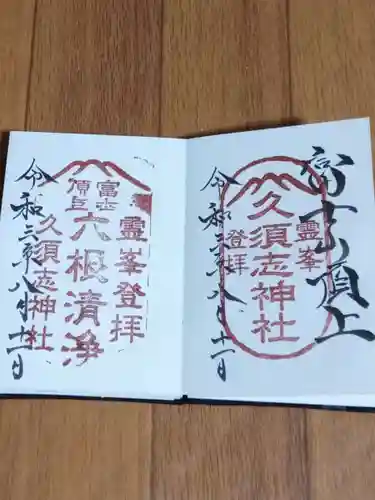 富士頂上
霊峯
久須志神社
登拝
令和三年八月十一日
霊峯登拝
富士
頂上
六根清浄
久須志神社
令和三年八月十一日